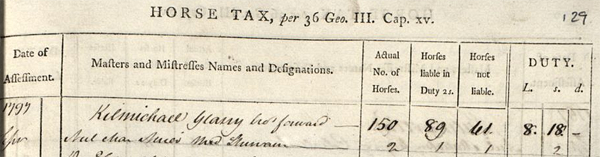 HORSE TAX, per 36 Geo. III. Cap. xv. 129
Date of Assessment. Masters and Mistresses Names and Designations. Actual No. of Horses. Horses liable in Duty 2s. Horses not liable. DUTY. L. s. d.
1797 Kilmichael Glassry brot forward 150 89 61 8. 18. -
Neil 2 1 1 2